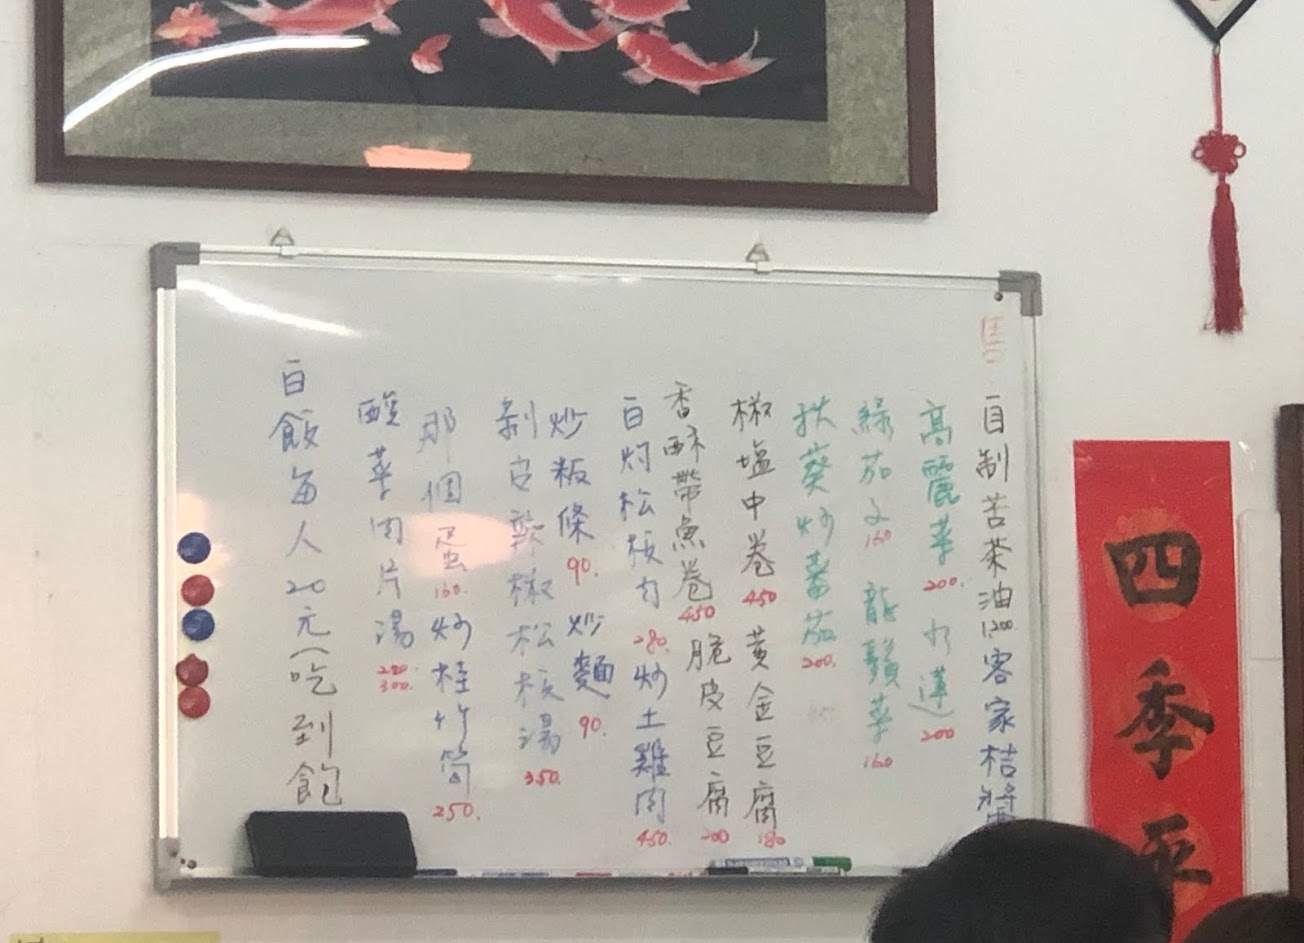 售
自制苦茶油1200 客家桔醬
高麗菜200. 水蓮200
綠茄子160 龍鬚菜160
秋葵炒蕃茄200.
椒塩中卷450 黄金豆腐180
香酥帶魚卷450 脆皮豆腐200
白灼松板肉280. 炒土雞肉450.
炒粄條90. 炒麵90.
剝皮辣椒松板湯350.
那個蛋160. 炒桂竹筍250.
酸菜肉片湯220. 300.
白飯每人20元(吃到飽
四季平